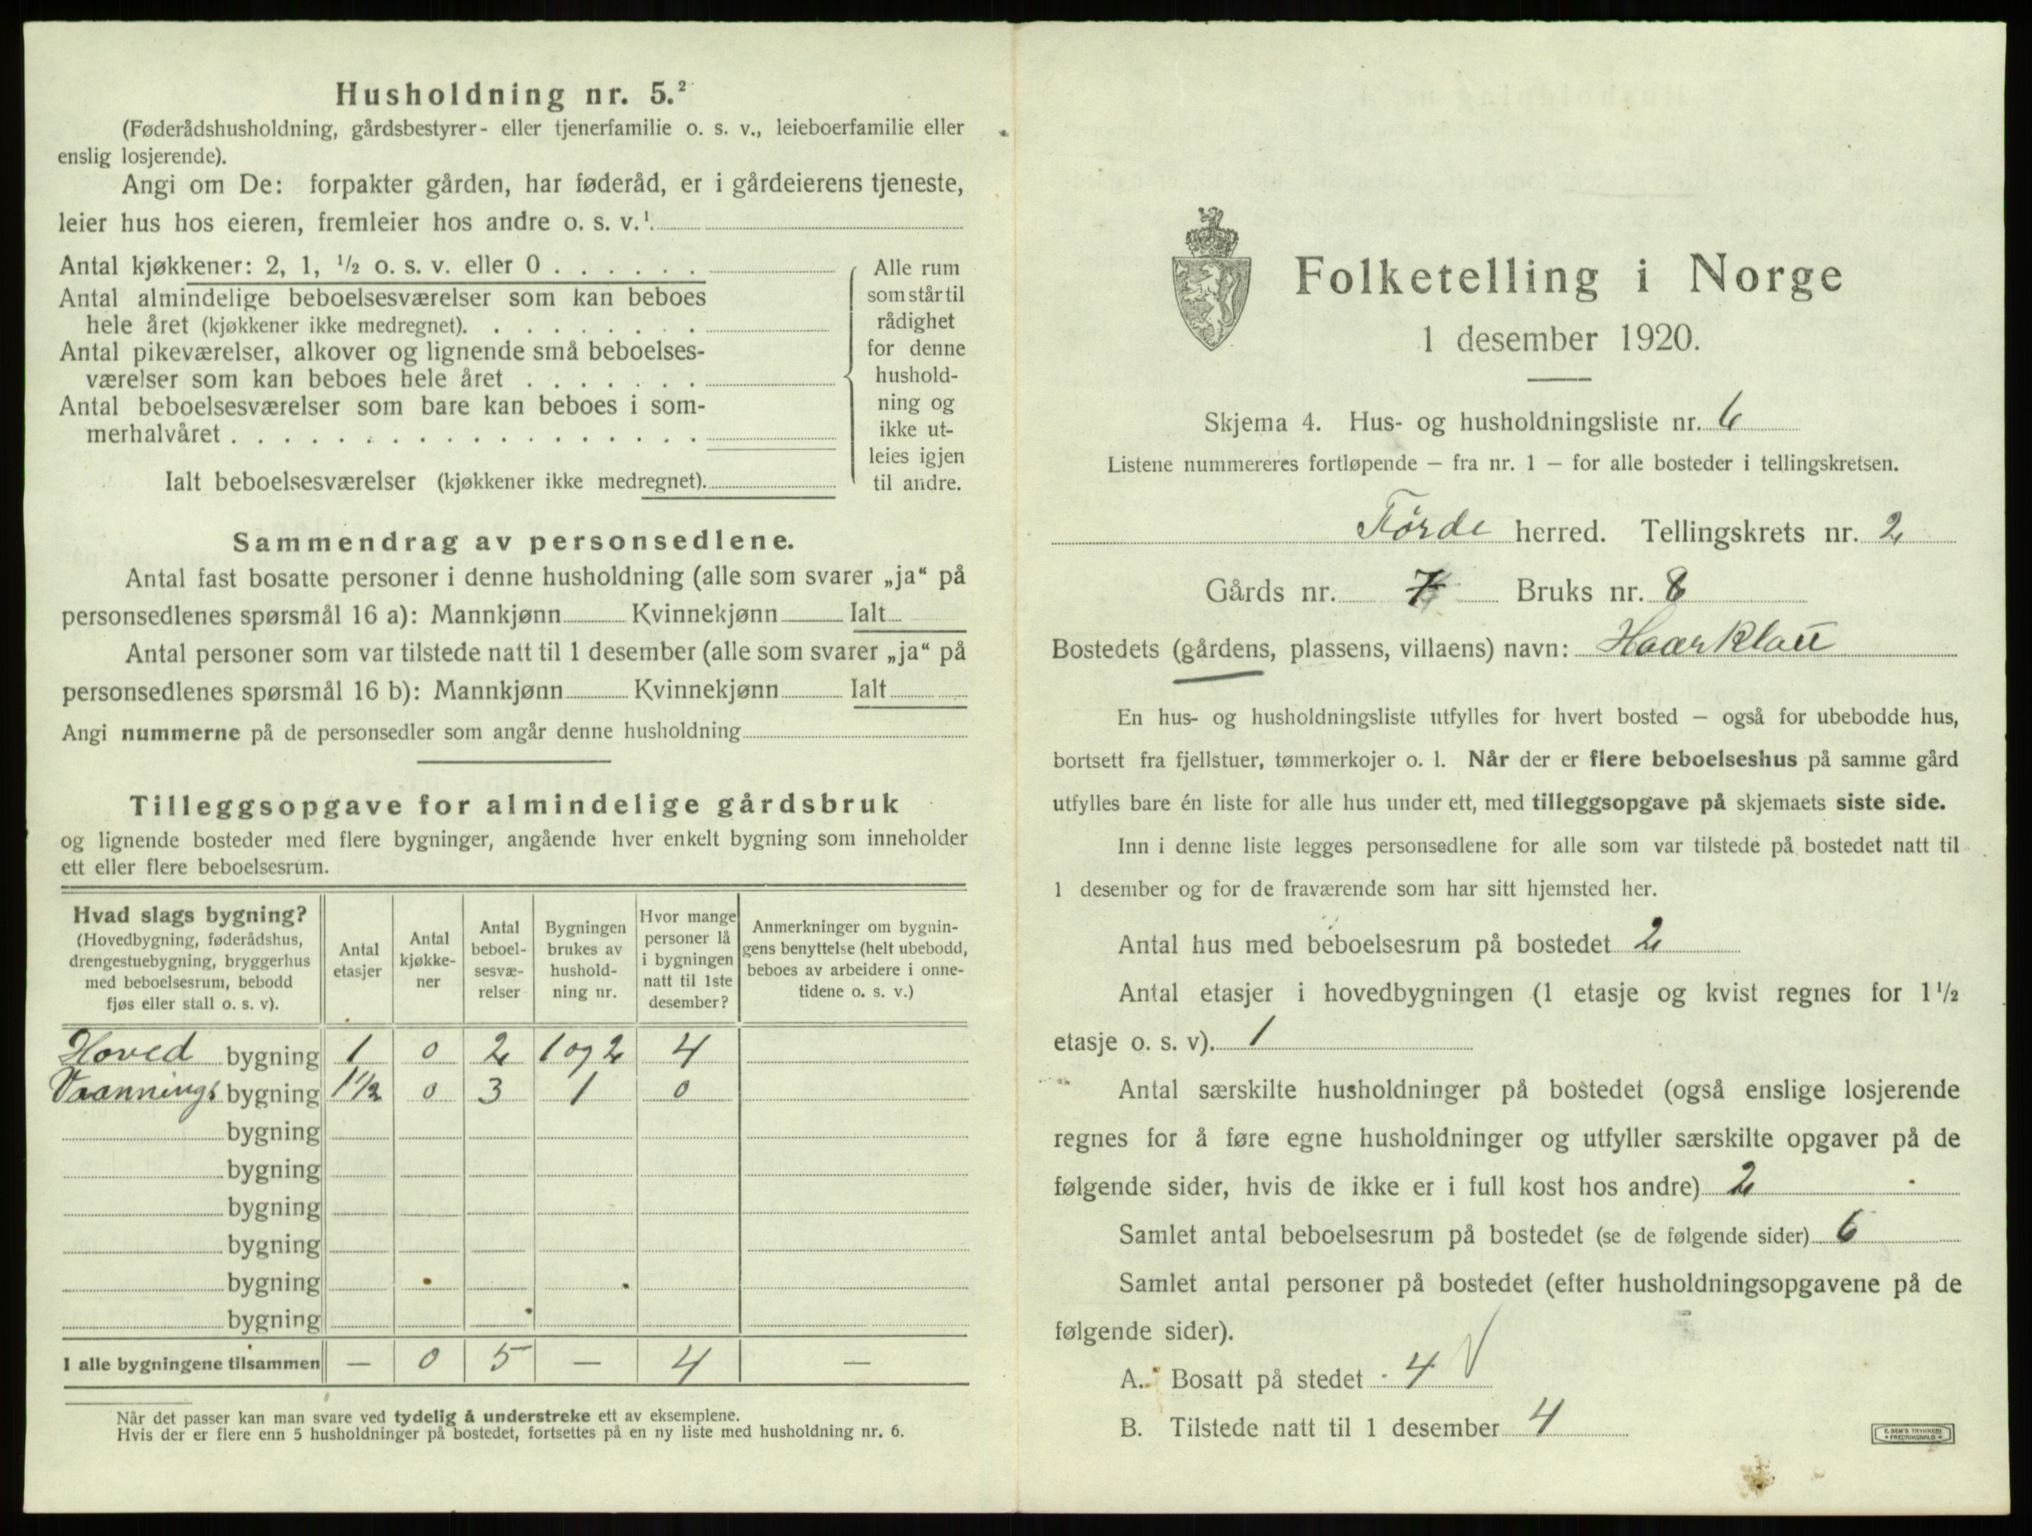 Husholdning nr. 5.²
(Føderådshusholdning, gårdsbestyrer- eller tjenerfamilie o. s. v., leieboerfamilie eller
enslig losjerende).
Angi om De: forpakter gården, har føderåd, er i gårdeierens tjeneste,
leier hus hos eieren, fremleier hos andre o. s. v.¹
Antal kjøkkener: 2, 1, ½ o. s. v. eller 0 . . . . . .
Antal almindelige beboelsesværelser som kan beboes
hele året (kjøkkener ikke medregnet). . . . . . . . .
Antal pikeværelser, alkover og lignende små beboelses-
værelser som kan beboes hele året . . . . . . .
Antal beboelsesværelser som bare kan beboes i som-
merhalvåret . . . . . . . . . . . . . . . . . .
Ialt beboelsesværelser (kjøkkener ikke medregnet).
Alle rum
som står til
rådighet
for denne
hushold-
ning og
ikke ut-
leies igjen
til andre.
Sammendrag av personsedlene.
Antal fast bosatte personer i denne husholdning (alle som svarer „ja“ på
personsedlenes spørsmål 16 a): Mannkjønn Kvinnekjønn Ialt
Antal personer som var tilstede natt til 1 desember (alle som svarer „ja“ på
personsedlenes spørsmål 16 b): Mannkjønn Kvinnekjønn Ialt
Angi nummerne på de personsedler som angår denne husholdning
Tilleggsopgave for almindelige gårdsbruk
og lignende bosteder med flere bygninger, angående hver enkelt bygning som inneholder
ett eller flere beboelsesrum.
Hvad slags bygning?
(Hovedbygning, føderådshus,
drengestuebygning, bryggerhus
med beboelsesrum, bebodd
fjøs eller stall o. s. v).
Antal
etasjer
Antal
kjøkke-
ner
Antal
beboel-
sesvæ-
relser
Bygningen
brukes av
hushold-
ning nr.
Hvor mange
personer lå
i bygningen
natt til 1ste
desember?
Anmerkninger om bygnin-
gens benyttelse (helt ubebodd,
beboes av arbeidere i onne-
tidene o. s. v.)
Hoved bygning 1 0 2 1 og 2 4
Vaannings bygning 1½ 0 3 1 0
bygning
bygning
bygning
bygning
bygning
bygning
I alle bygningene tilsammen — 0 5 — 4 —
Når det passer kan man svare ved tydelig å understreke ett av eksemplene.
Hvis der er flere enn 5 husholdninger på bostedet, fortsettes på en ny liste med husholdning nr. 6.
Folketelling i Norge
1 desember 1920.
Skjema 4. Hus- og husholdningsliste nr. 6
Listene nummereres fortløpende – fra nr. 1 – for alle bosteder i tellingskretsen.
Førde herred. Tellingskrets nr. 2
Gårds nr. 7 Bruks nr. 8
Bostedets (gårdens, plassens, villaens) navn: Haarklau
En hus- og husholdningsliste utfylles for hvert bosted – også for ubebodde hus,
bortsett fra fjellstuer, tømmerkojer o. l. Når der er flere beboelseshus på samme gård
utfylles bare én liste for alle hus under ett, med tilleggsopgave på skjemaets siste side.
Inn i denne liste legges personsedlene for alle som var tilstede på bostedet natt til
1 desember og for de fraværende som har sitt hjemsted her.
Antal hus med beboelsesrum på bostedet 2
Antal etasjer i hovedbygningen (1 etasje og kvist regnes for 1½
etasje o. s. v). 1
Antal særskilte husholdninger på bostedet (også enslige losjerende
regnes for å føre egne husholdninger og utfyller særskilte opgaver på de
følgende sider, hvis de ikke er i full kost hos andre) 2
Samlet antal beboelsesrum på bostedet (se de følgende sider) 6
Samlet antal personer på bostedet (efter husholdningsopgavene på de
følgende sider).
A. Bosatt på stedet 4
B. Tilstede natt til 1 desember 4